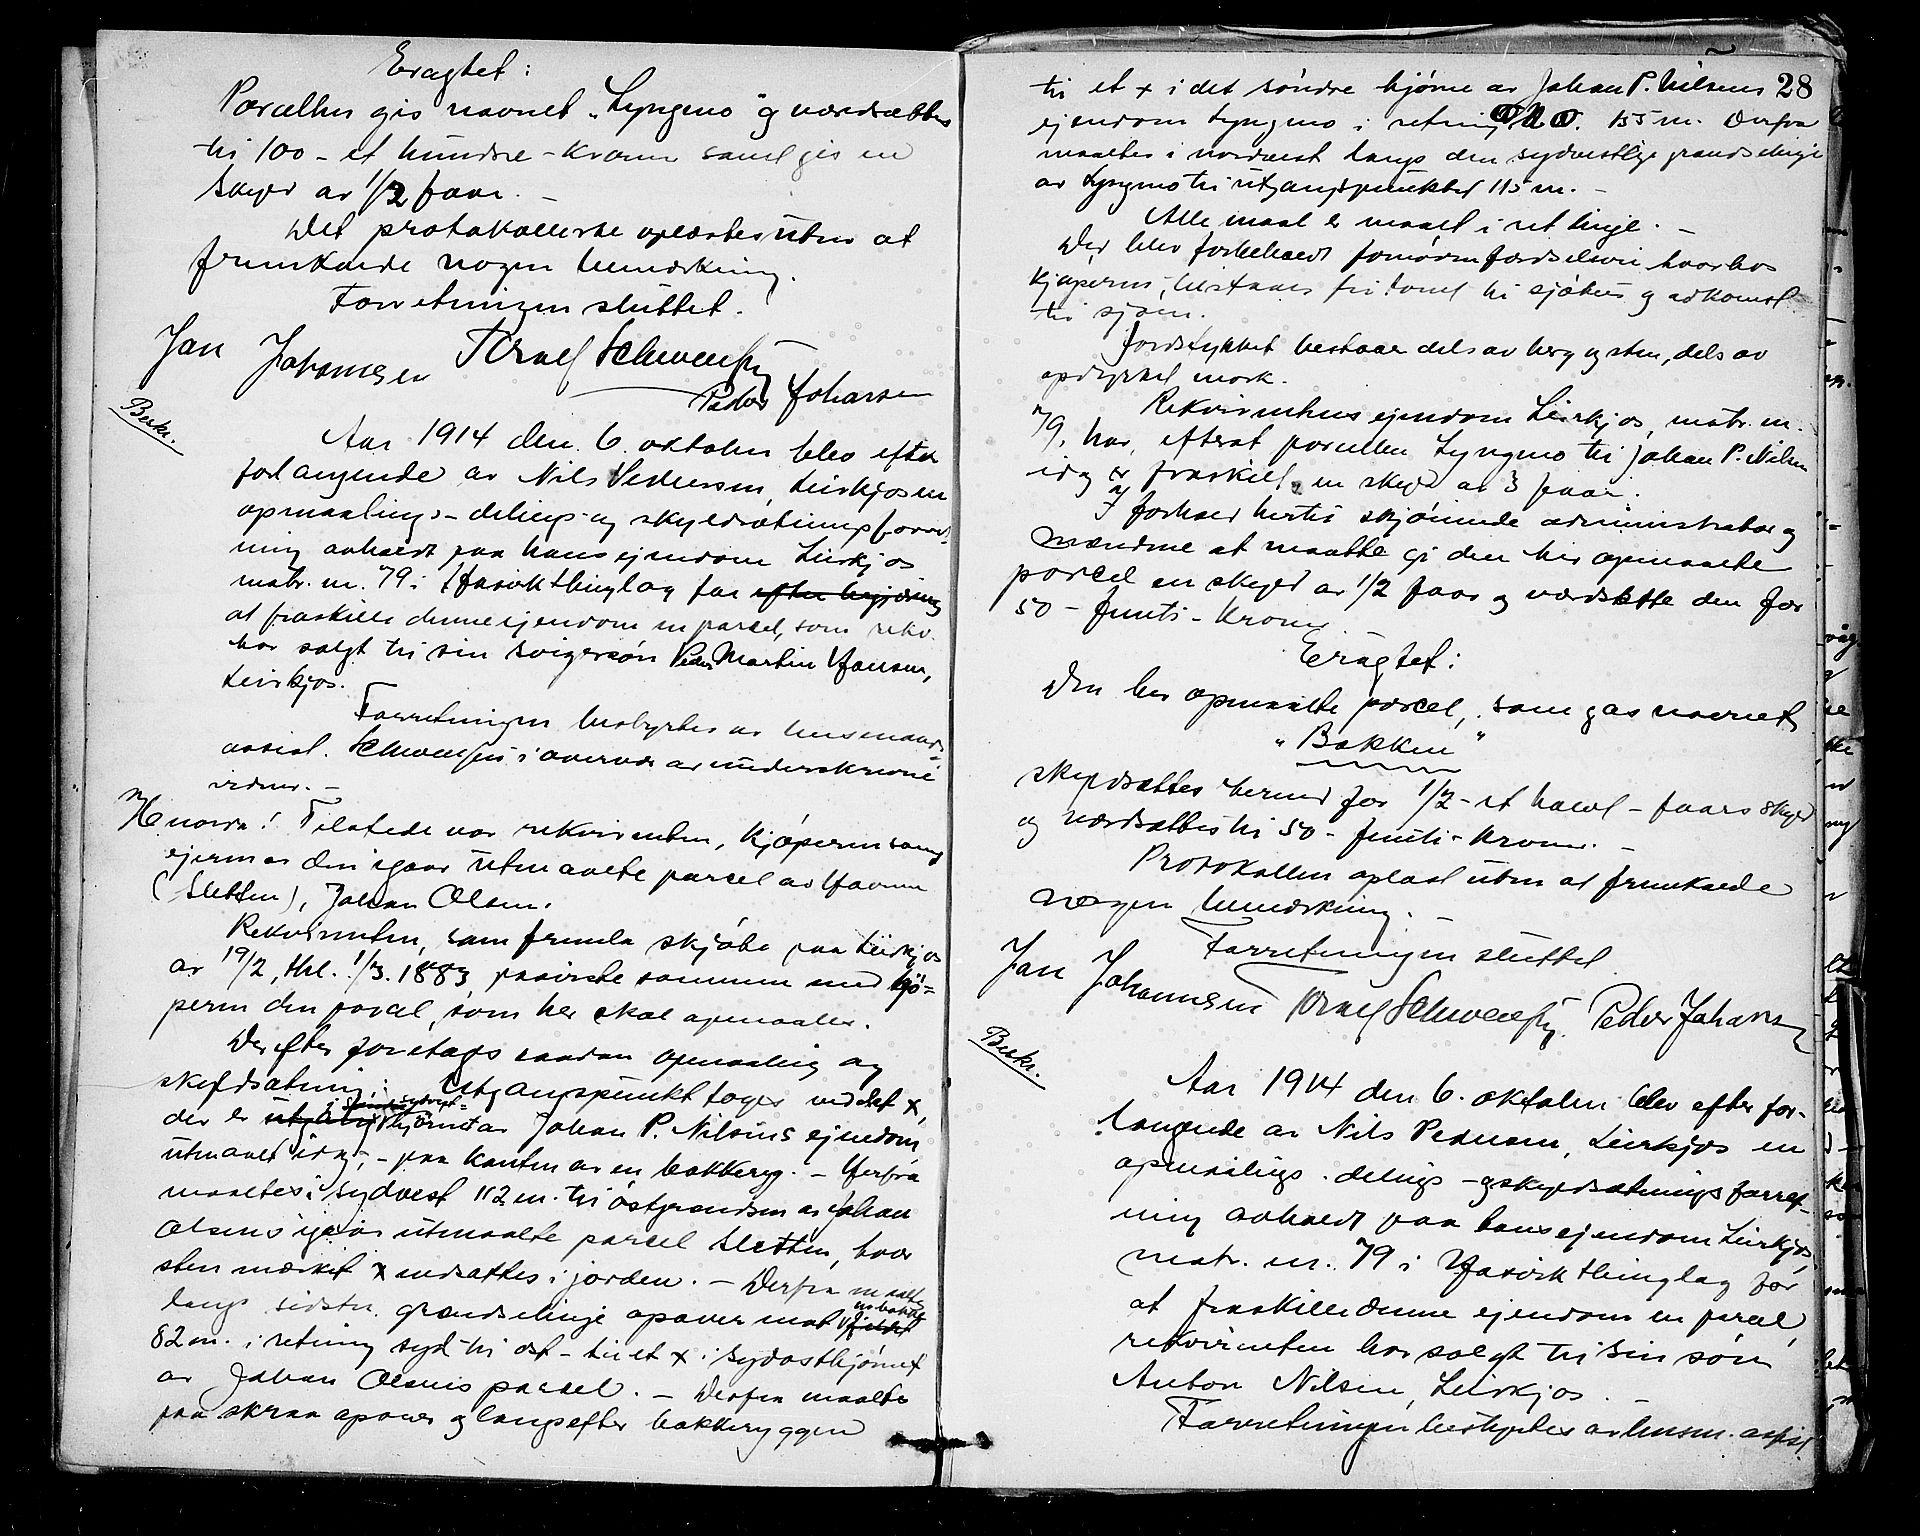 Eragtet:
Parcellen gis navnet "Lyngmo" og værdsættes
til 100 - et hundre - kroner samt gis en
skyld av 1/2 faar. -
Det protokollerte oplæstes uten at
fremkalde nogen bemærkning.
Forretningen sluttet.
Jan Johannesen Israel Schwensen
Peder Johansen
Beskr.
Aar 1914 den 6. oktober blev efter
forlangende av Nils Pedersen, Leirkjos en
opmaalings- delings- og skyldsætningsforret-
ning avholdt paa hans ejendom Leirkjos
matr. nr. 79 i thinglag for
at fraskille denne ejendom en parcel, som rekv.
har solgt til sin svigersøn Peder Martin Hansen,
Leirkjos.
Forretningen bestyrtes av lensmands-
assist. Schwensen i overvær av underskrevne
vidner. -
Tilstede var rekvirenten, kjøperen samt
ejeren av den igaar utmaalte parcel av
(Sletten), Johan Olsen.
Rekvirenten, som fremla skjøte paa Leirkjos
av 19/2, thl. 1/3. 1883, paaviste sammen med kjø-
peren den parcel, som her skal opmaales.
Derefter foretags saadan opmaaling og
skyldsætning: Utgangspunkt toges ved det x,
der er i hjørnet av Johan P. Nilsens ejendom
utmaalt idag, - paa kanten av en bakkeryg. - Herfra
maaltes i sydvest 112 m. til østgrændsen av Johan
Olsens igaar utmaalte parcel Sletten, hvor
sten mærket x nedsattes i jorden. - Derfra maaltes
langs sidstn. grændselinje opover mot
82 m. i retning syd til øst - til et x i sydøsthjørnet
av Johan Olsens parcel. - Derfra maaltes
paa skraa opover og langsefter bakkeryggen
28
til et x i det søndre hjørne av Johan P. Nilsens
ejendom Lyngmo i retning 155 m. Derfra
maaltes i nordvest langs den sydvestlige grændselinje
av Lyngmo til utgangspunktet 115 m. -
Alle maal er maalt i ret linje. -
Der blev forbeholdt fornøden færdselsvei hvorhos
kjøperen tilstaaes fri tomt til sjøhus og adkomst
til sjøen.
Jordstykket bestaar dels av berg og sten, dels av
opdyrket mark.
Rekvirentens ejendom Leirkjos, matr. nr.
79, har, efterat parcellen Lyngmo til Johan P. Nilsen
idag er fraskilt, en skyld av 3 faar.
I forhold hertil skjønnede administrator og
mændene at maatte gi den her opmaalte
parcel en skyld av 1/2 faar og værdsætte den for
50 - femti - kroner.
Eragtet:
Den her opmaalte parcel, som gas navnet
"Bakken"
skyldsættes herved for 1/2 - et halvt - faars skyld
og værdsættes til 50 - femti - kroner. -
Protokollen oplæst uten at fremkalde
nogen bemærkning. -
Forretningen sluttet
Jan Johannesen Israel Schwensen. Peder Johansen
Beskr.
Aar 1914 den 6. oktober blev efter for-
langende av Nils Pedersen, Leirkjos en
opmaalings- delings- og skyldsætningsforret-
ning avholdt paa hans ejendom Leirkjos
matr. nr. 79 i thinglag for
at fraskille denne ejendom en parcel,
rekvirenten har solgt til sin søn
Anton Nilsen, Leirkjos.
Forretningen bestyrtes av lensm. assist.